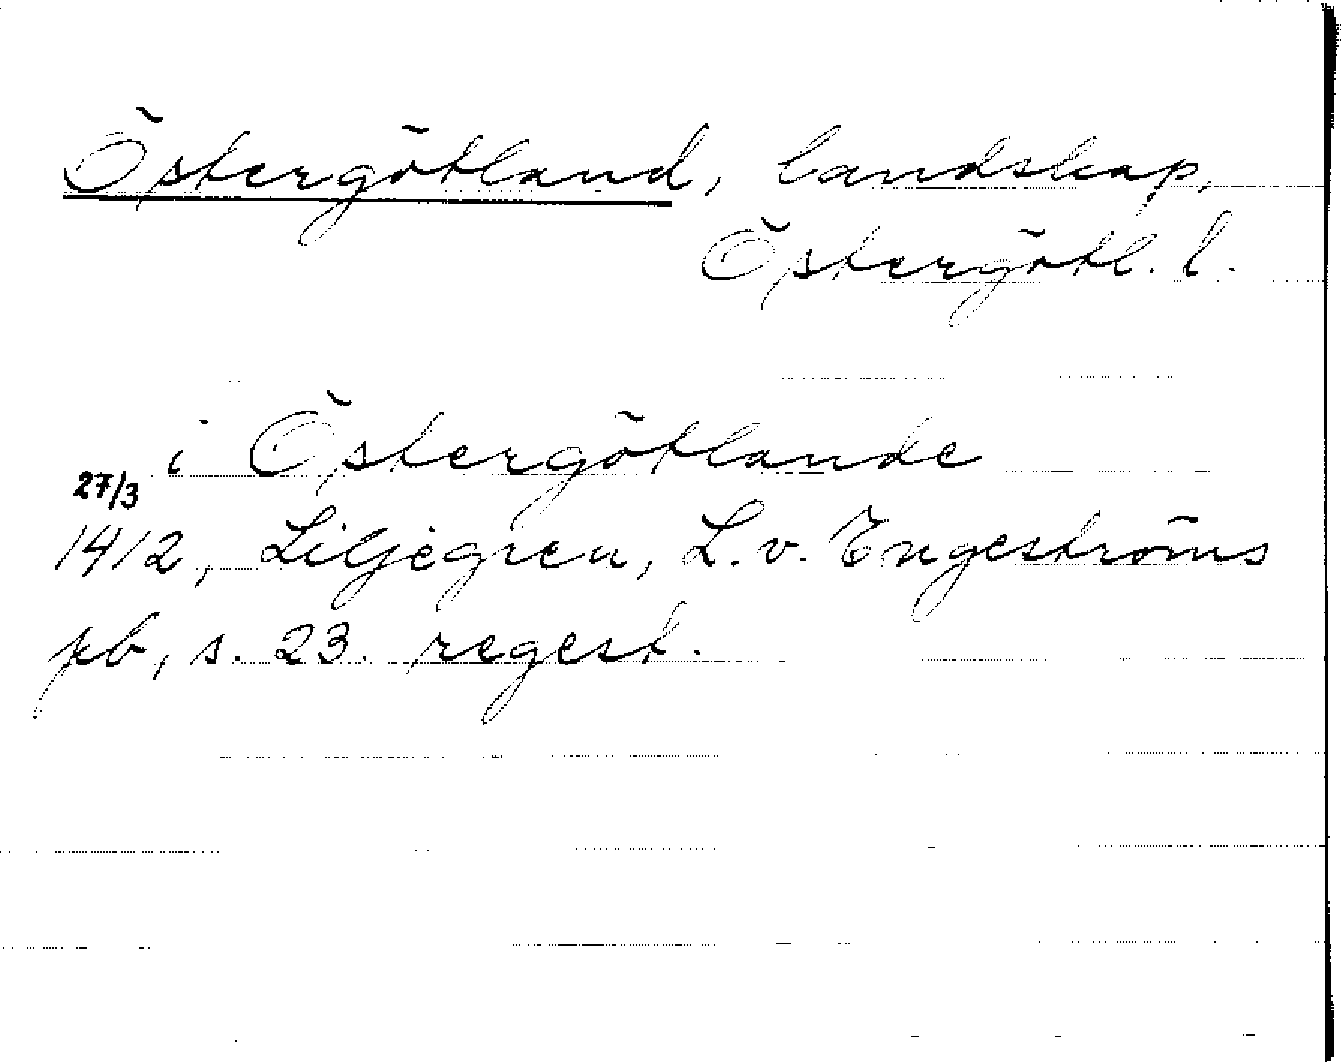 Östergötland, landskap,
Östergötl. l.
i Östergötlande
27/3
1412, Liljegren, L. v. Engeströms
pb, s. 23. regest.